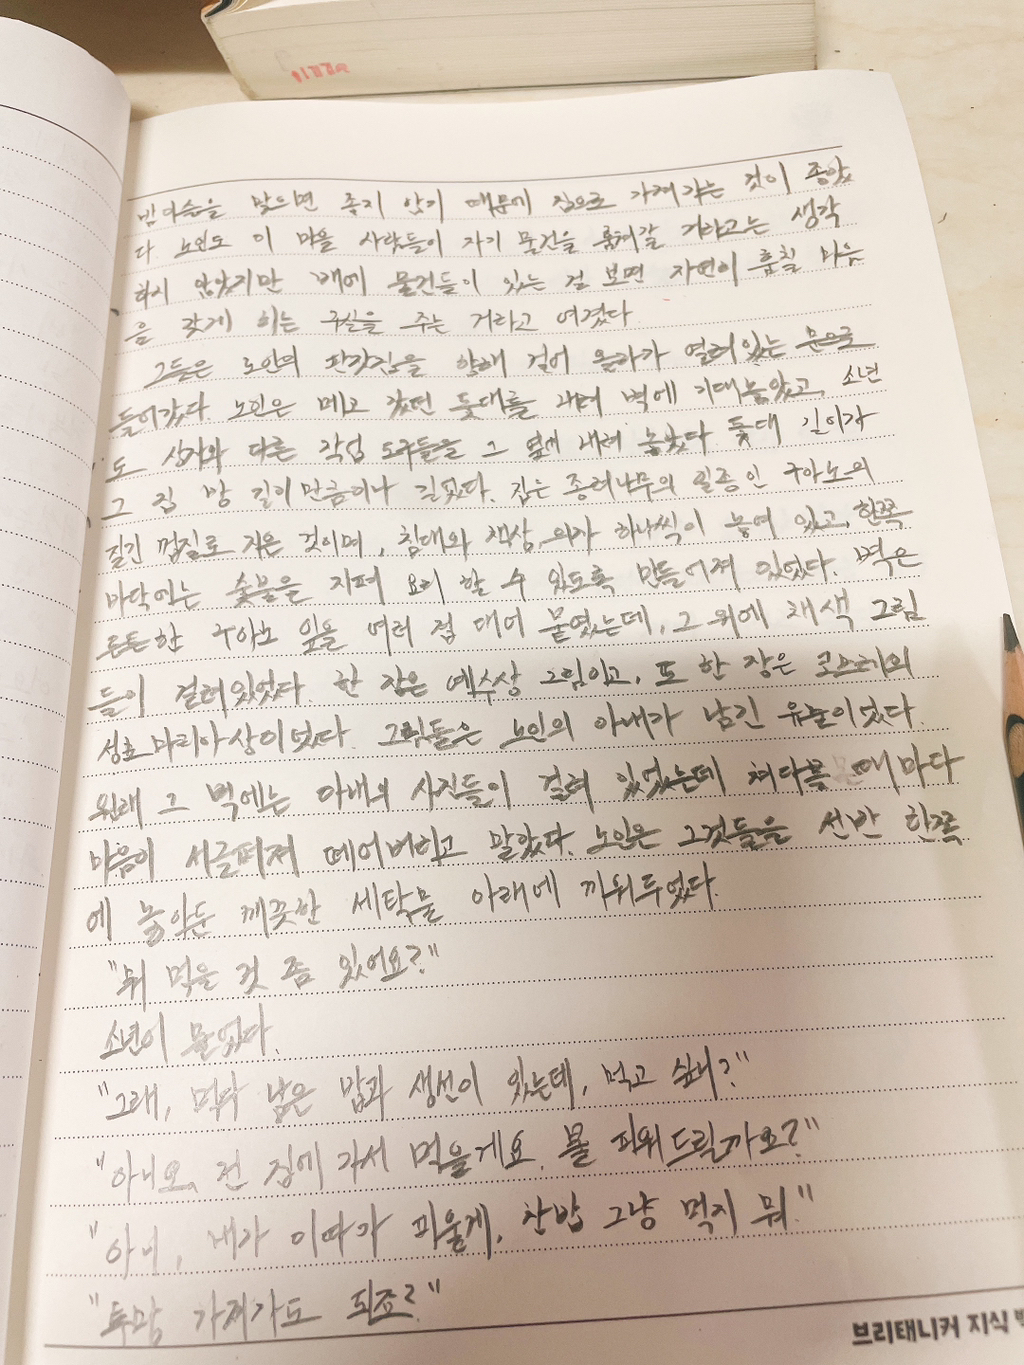 밤이슬을 맞으면 좋지 않기 때문에 집으로 가져가는 것이 좋았
다. 노인도 이 마을 사람들이 자기 물건을 훔쳐갈 거라고는 생각
하지 않았지만 배에 물건들이 있는 걸 보면 자연이 훔칠 마음
을 갖게 하는 구실을 주는 거라고 여겼다
그들은 노인의 판잣집을 향해 걸어 올라가 열려있는 문으로
들어갔다. 노인은 메고 갔던 돛대를 내려 벽에 기대놓았고, 소년
도 상자와 다른 작업 도구들을 그 옆에 내려 놓았다 돛대 길이가
그 집 방 길이만큼이나 길었다. 집는 종려나무의 일종인 구아노의
질긴 껍질로 지은 것이며, 침대와 책상, 의자 하나씩이 놓여 있고, 한쪽
바닥에는 숯불을 지펴 요리 할 수 있도록 만들어져 있었다. 벽은
튼튼한 구아노 잎을 여러 겹 대어 붙였는데, 그 위에 채색 그림
들이 걸려있었다. 한 장은 예수상 그림이고, 또 한 장은 코브레의
성모 마리아상이었다. 그림들은 노인의 아내가 남긴 유눌이었다.
원래 그 벽에는 아내의 사진들이 걸려 있었는데 쳐다볼 때마다
마음이 서글퍼져 떼어버리고 말았다. 노인은 그것들을 선반 한쪽
에 놓아둔 깨끗한 세탁물 아래에 끼워두었다.
"뭐 먹을 것 좀 있어요?"
소년이 물었다.
"그래, 먹다 남은 밥과 생선이 있는데, 먹고 싶니?"
"아니요, 전 집에 가서 먹을게요. 불 피워드릴까요?"
"아니, 내가 이따가 피울게, 찬밥 그냥 먹지 뭐."
"투망 가져가도 되죠?"
브리태니커 지식